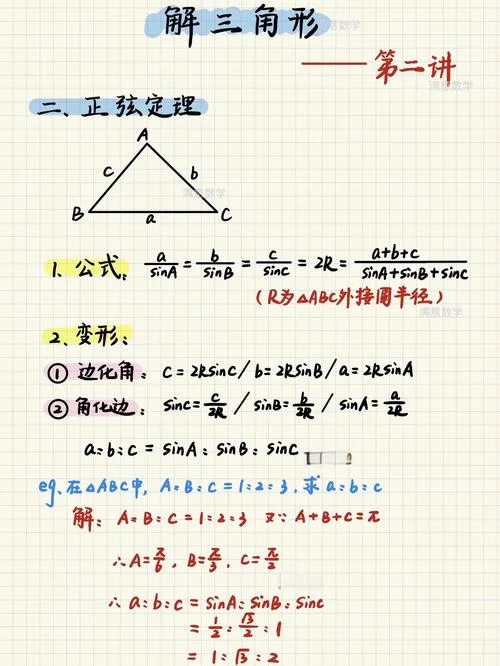 解三角形
满意数学
——第二讲
满意数学
二、正弦定理
A
c b
满意数学
B a C
1. 公式: a/sinA = b/sinB = c/sinC = 2R = a+b+c/sinA+sinB+sinC
(R为△ABC外接圆半径)
满意数学
2. 变形:
① 边化角: C=2RsinC / b=2RsinB / a=2RsinA
② 角化边: sinC=c/2R / sinB=b/2R / sinA=a/2R
a:b:c = sinA:sinB:sinC
eg. 在△ABC中, A:B:C=1:2:3, 求a:b:c
解: A:B:C=1:2:3 又∵A+B+C=π
∴A=π/6, B=π/3, C=π/2
∴a:b:c = sinA:sinB:sinC
= 1/2:√3/2:1
= 1:√3:2